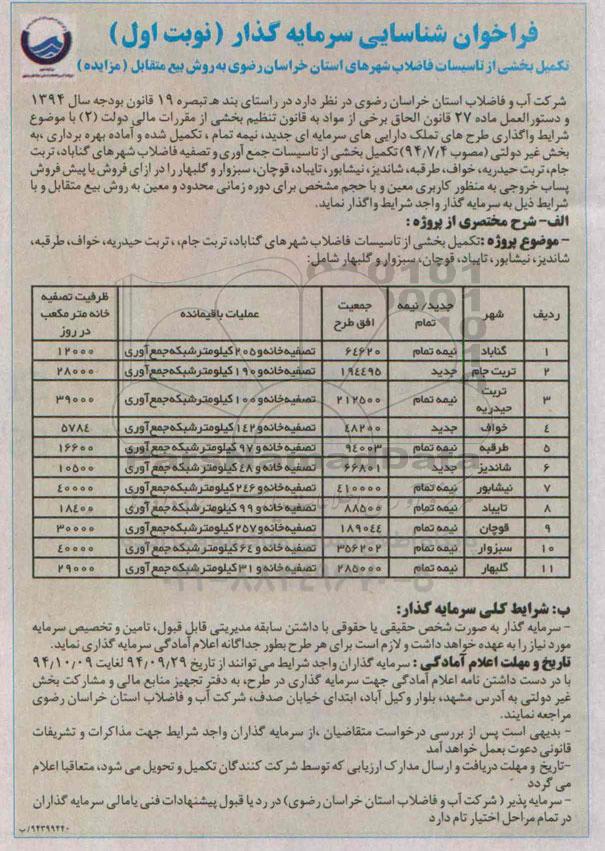 فراخوان شناسایی سرمایه گذار (نوبت اول)
تکمیل بخشی از تاسیسات فاضلاب شهرهای استان خراسان رضوی به روش بیع متقابل (مزایده)
شرکت آب و فاضلاب استان خراسان رضوی در نظر دارد در راستای بند هـ تبصره ۱۹ قانون بودجه سال ۱۳۹۴
و دستورالعمل ماده ۲۷ قانون الحاق برخی از مواد به قانون تنظیم بخشی از مقررات مالی دولت (۲) با موضوع
شرایط واگذاری طرح های تملک دارایی های سرمایه ای جدید، نیمه تمام ، تکمیل شده و آماده بهره برداری ،به
بخش غیر دولتی (مصوب ۹۴/۷/۴) تکمیل بخشی از تاسیسات جمع آوری و تصفیه فاضلاب شهرهای گناباد، تربت
جام، تربت حیدریه، خواف، طرقبه، شاندیز، نیشابور، تایباد، قوچان، سبزوار و گلبهار را در ازای فروش یا پیش فروش
پساب خروجی به منظور کاربری معین و با حجم مشخص برای دوره زمانی محدود و معین به روش بیع متقابل و با
شرایط ذیل به سرمایه گذار واجد شرایط واگذار نماید.
الف- شرح مختصری از پروژه :
- موضوع پروژه :تکمیل بخشی از تاسیسات فاضلاب شهرهای گناباد، تربت جام، ، تربت حیدریه، خواف، طرقبه،
شاندیز، نیشابور، تایباد، قوچان، سبزوار و گلبهار شامل:
ردیف شهر جدید/ نیمه تمام جمعیت افق طرح عملیات باقیمانده ظرفیت تصفیه خانه متر مکعب در روز
۱ گناباد نیمه تمام ۶۴۶۲۰ تصفیه خانه و ۲۰۵ کیلومتر شبکه جمع آوری ۱۲۰۰۰
۲ تربت جام جدید ۱۹۴۴۹۵ تصفیه خانه و ۱۹۰ کیلومتر شبکه جمع آوری ۲۸۰۰۰
۳ تربت حیدریه نیمه تمام ۲۱۲۵۰۰ تصفیه خانه و ۱۰۰ کیلومتر شبکه جمع آوری ۳۹۰۰۰
۴ خواف جدید ۴۸۲۰۰ تصفیه خانه و ۱۴۲ کیلومتر شبکه جمع آوری ۵۷۸۴
۵ طرقبه نیمه تمام ۹۴۰۰۳ تصفیه خانه و ۹۷ کیلومتر شبکه جمع آوری ۱۶۶۰۰
۶ شاندیز جدید ۶۶۸۰۱ تصفیه خانه و ۴۸ کیلومتر شبکه جمع آوری ۱۰۵۰۰
۷ نیشابور نیمه تمام ۴۱۰۰۰۰ تصفیه خانه و ۲۴۶ کیلومتر شبکه جمع آوری ۴۰۰۰۰
۸ تایباد نیمه تمام ۸۸۵۰۰ تصفیه خانه و ۹۹ کیلومتر شبکه جمع آوری ۱۸۴۰۰
۹ قوچان نیمه تمام ۱۸۹۰۴۴ تصفیه خانه و ۲۵۷ کیلومتر شبکه جمع آوری ۳۰۰۰۰
۱۰ سبزوار نیمه تمام ۳۵۶۲۰۲ تصفیه خانه و ۶۴ کیلومتر شبکه جمع آوری ۴۰۰۰۰
۱۱ گلبهار نیمه تمام ۲۸۵۰۰۰ تصفیه خانه و ۳۱ کیلومتر شبکه جمع آوری ۲۹۰۰۰
ب: شرایط کلی سرمایه گذار:
- سرمایه گذار به صورت شخص حقیقی یا حقوقی با داشتن سابقه مدیریتی قابل قبول، تامین و تخصیص سرمایه
مورد نیاز را به عهده خواهد داشت و لازم است برای هر طرح بطور جداگانه اعلام آمادگی سرمایه گذاری نماید.
تاریخ و مهلت اعلام آمادگی : سرمایه گذاران واجد شرایط می توانند از تاریخ ۹۴/۰۹/۲۹ لغایت ۹۴/۱۰/۰۹
با در دست داشتن نامه اعلام آمادگی جهت سرمایه گذاری در طرح، به دفتر تجهیز منابع مالی و مشارکت بخش
غیر دولتی به آدرس مشهد، بلوار وکیل آباد، ابتدای خیابان صدف، شرکت آب و فاضلاب استان خراسان رضوی
مراجعه نمایند.
- بدیهی است پس از بررسی درخواست متقاضیان ،از سرمایه گذاران واجد شرایط جهت مذاکرات و تشریفات
قانونی دعوت بعمل خواهد آمد
-تاریخ و مهلت دریافت و ارسال مدارک ارزیابی که توسط شرکت کنندگان تکمیل و تحویل می شود، متعاقبا اعلام
می گردد
- سرمایه پذیر ( شرکت آب و فاضلاب استان خراسان رضوی) در رد یا قبول پیشنهادات فنی یامالی سرمایه گذاران
در تمام مراحل اختیار تام دارد
۹۴۳۹۹۴۴۰/پ